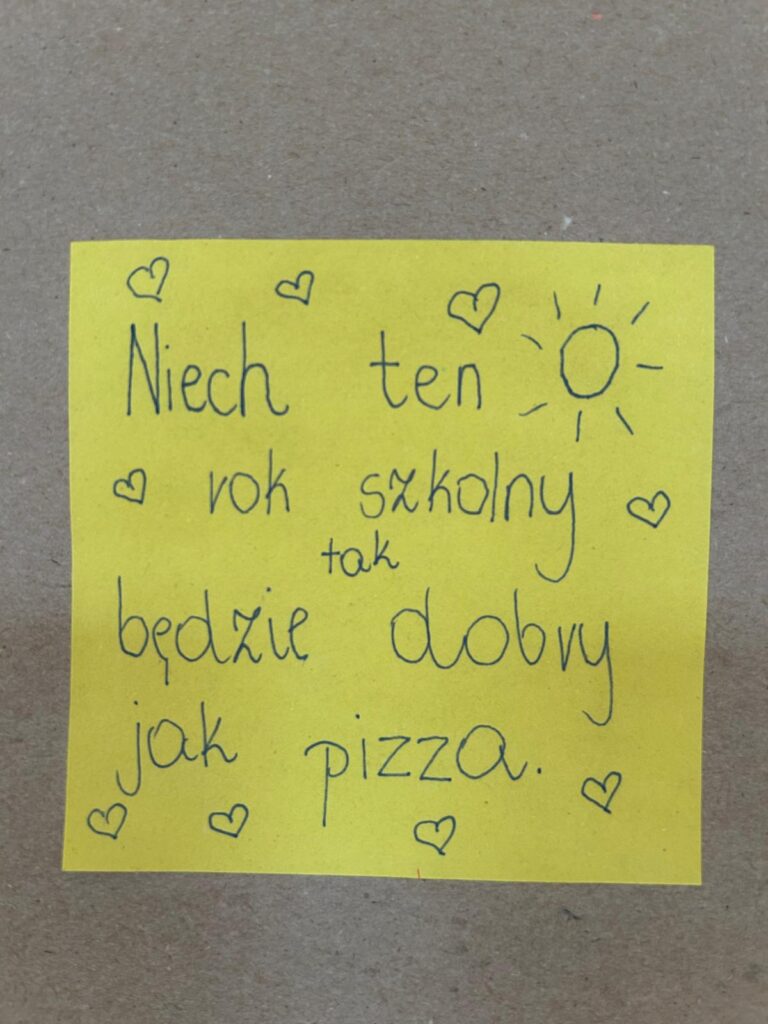 Niech ten
rok szkolny
tak
będzie dobry
jak pizza.